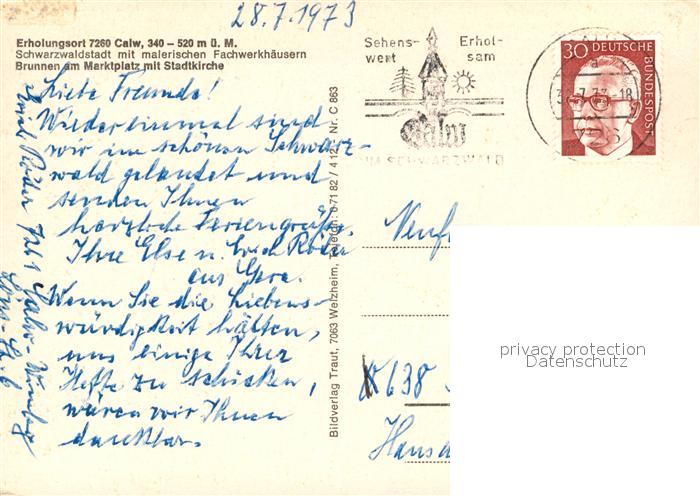 28.7.1973
Erholungsort 7260 Calw, 340 – 520 m ü. M.
Schwarzwaldstadt mit malerischen Fachwerkhäusern
Brunnen am Marktplatz mit Stadtkirche
Liebe Freunde!
Wiedereinmal sind
wir im schönen Schwarz-
wald gelandet und
senden Ihnen
herzliche Feriengrüße.
Ihre Else u. Erich Röder
aus Gera.
Wenn Sie die Liebens-
würdigkeit hätten,
uns einige Ihrer
Hefte zu schicken,
wären wir Ihnen
dankbar.
Röder 7261 Calw-
Bildverlag Traut, 7063 Welzheim, Telefon: 0 71 82 / 4 12 Nr. C 863
Sehens-
wert
Erhol-
sam
Calw
IM SCHWARZWALD
7.73 - 18
a
30 DEUTSCHE
BUNDESPOST
638
privacy protection
Datenschutz